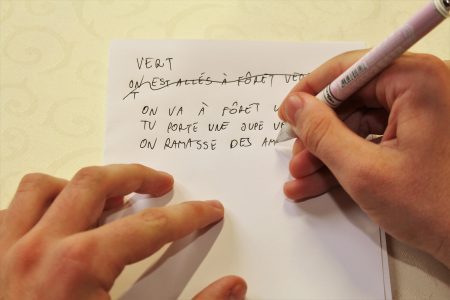 VERT
ON EST ALLÉS À FÔRET VER
T
ON VA À FÔRET V
TU PORTE UNE JUPE VE
ON RAMASSE DES AM